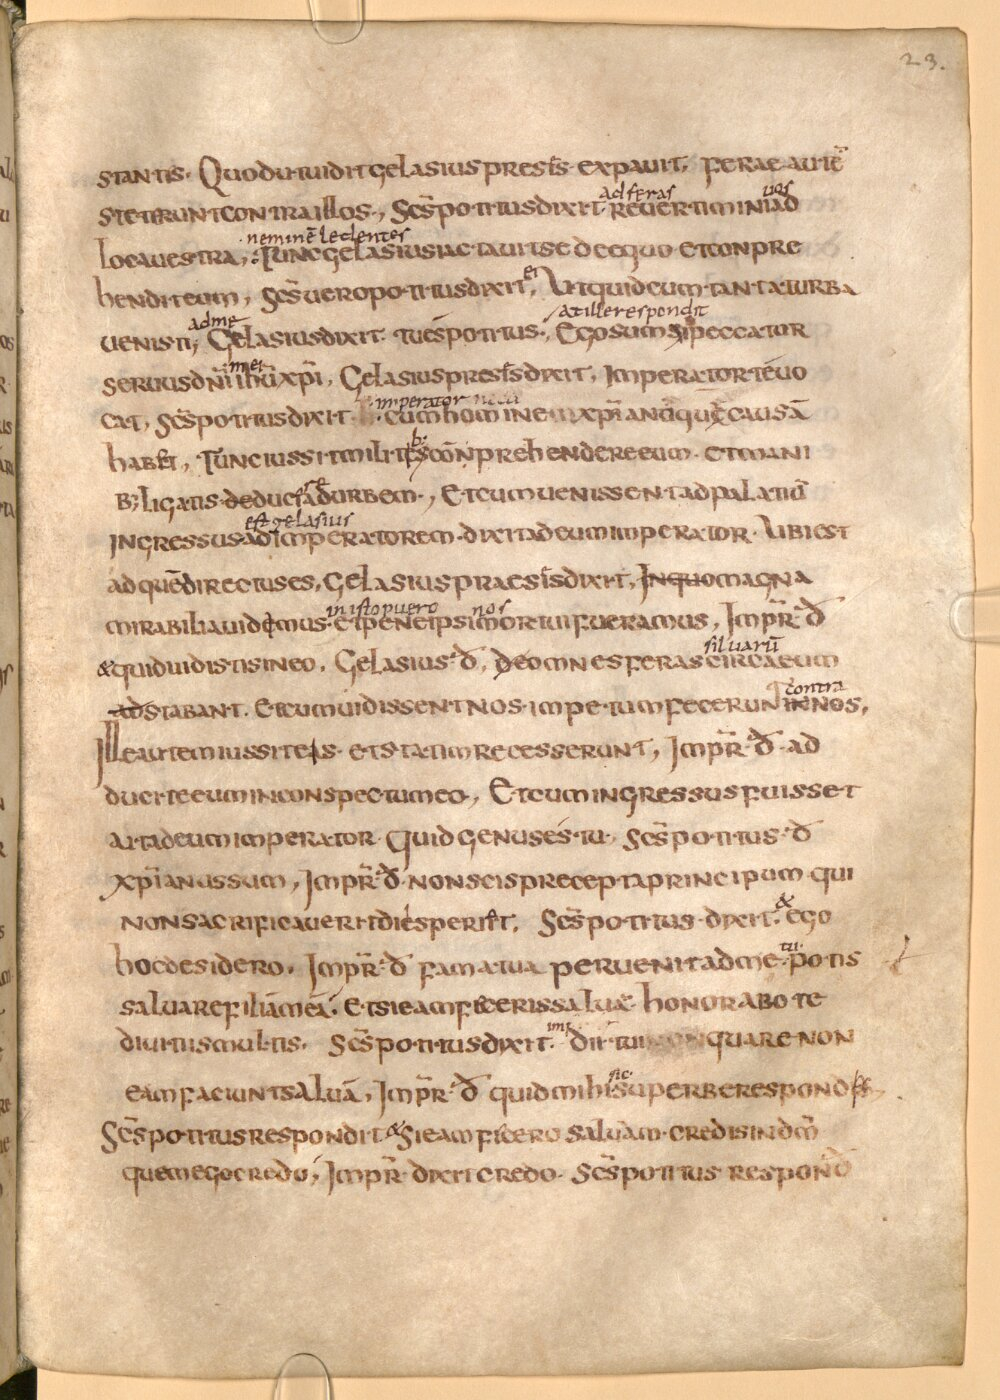 23.
stantis. Quod ut uidit gelasius presƀs expauit. ferae autē
steterunt contra illos., Scs̄ potitus dixit ad feras reuertimini uos ad
loca uestra, neminē ledentes Tunc gelasius iactauit se de equo et conpre
hendit eum, scs̄ uero potitus dixit ei, Ut quid cum tanta turba
uenisti ad me, Gelasius dixit. tu es potitus. at ille respondit Ego sum peccator
seruus dn̄i mei ihū xp̄i, Gelasius presƀs dixit, Imperator te uo
cat, scs̄ potitus dixit imperator cum homine xp̄iano quē causā
habet, Tunc iussit milites conprehendere eum. et mani
b; ligatis deduci ad urbem., Et cum uenissent ad palatiū
ingressus est gelasius ad imperatorem. dixit ad eum imperator. Ubi est
ad quē directus es, Gelasius praesƀs dixit, In quo magna
mirabilia uidimus in isto puero et pene ipsi nos mortui fueramus, Imp̄r đ
& quid uidistis in eo, Gelasius đ, omnes feras siluarū circa eum
adstabant. et cum uidissent nos impetum fecerunt contra in nos,
Ille autem iussit eis et statim recesserunt, Imp̄r đ ad
ducite eum in conspectu meo, Et cum ingressus fuisset
ait ad eum imperator. Quid genus es tu, scs̄ potitus đ
xp̄ianus sum, Imp̄r đ non scis precepta principum. qui
non sacrificauerit dies periet, Scs̄ potitus dixit. & ego
hoc desidero. Imp̄r đ fama tua peruenit ad me. tu potis
saluare filiā meā. et si eam feceris saluā honorabo te
diuitiis multis. Scs̄ potitus dixit. dii tui quare non
eam faciunt saluā, Imp̄r đ quid mihi sic superbe respond
Scs̄ potitus respondit & si eam fecero saluam. credis in dm̄
quem ego credo, Imp̄r dixit credo. Scs̄ potitus respond